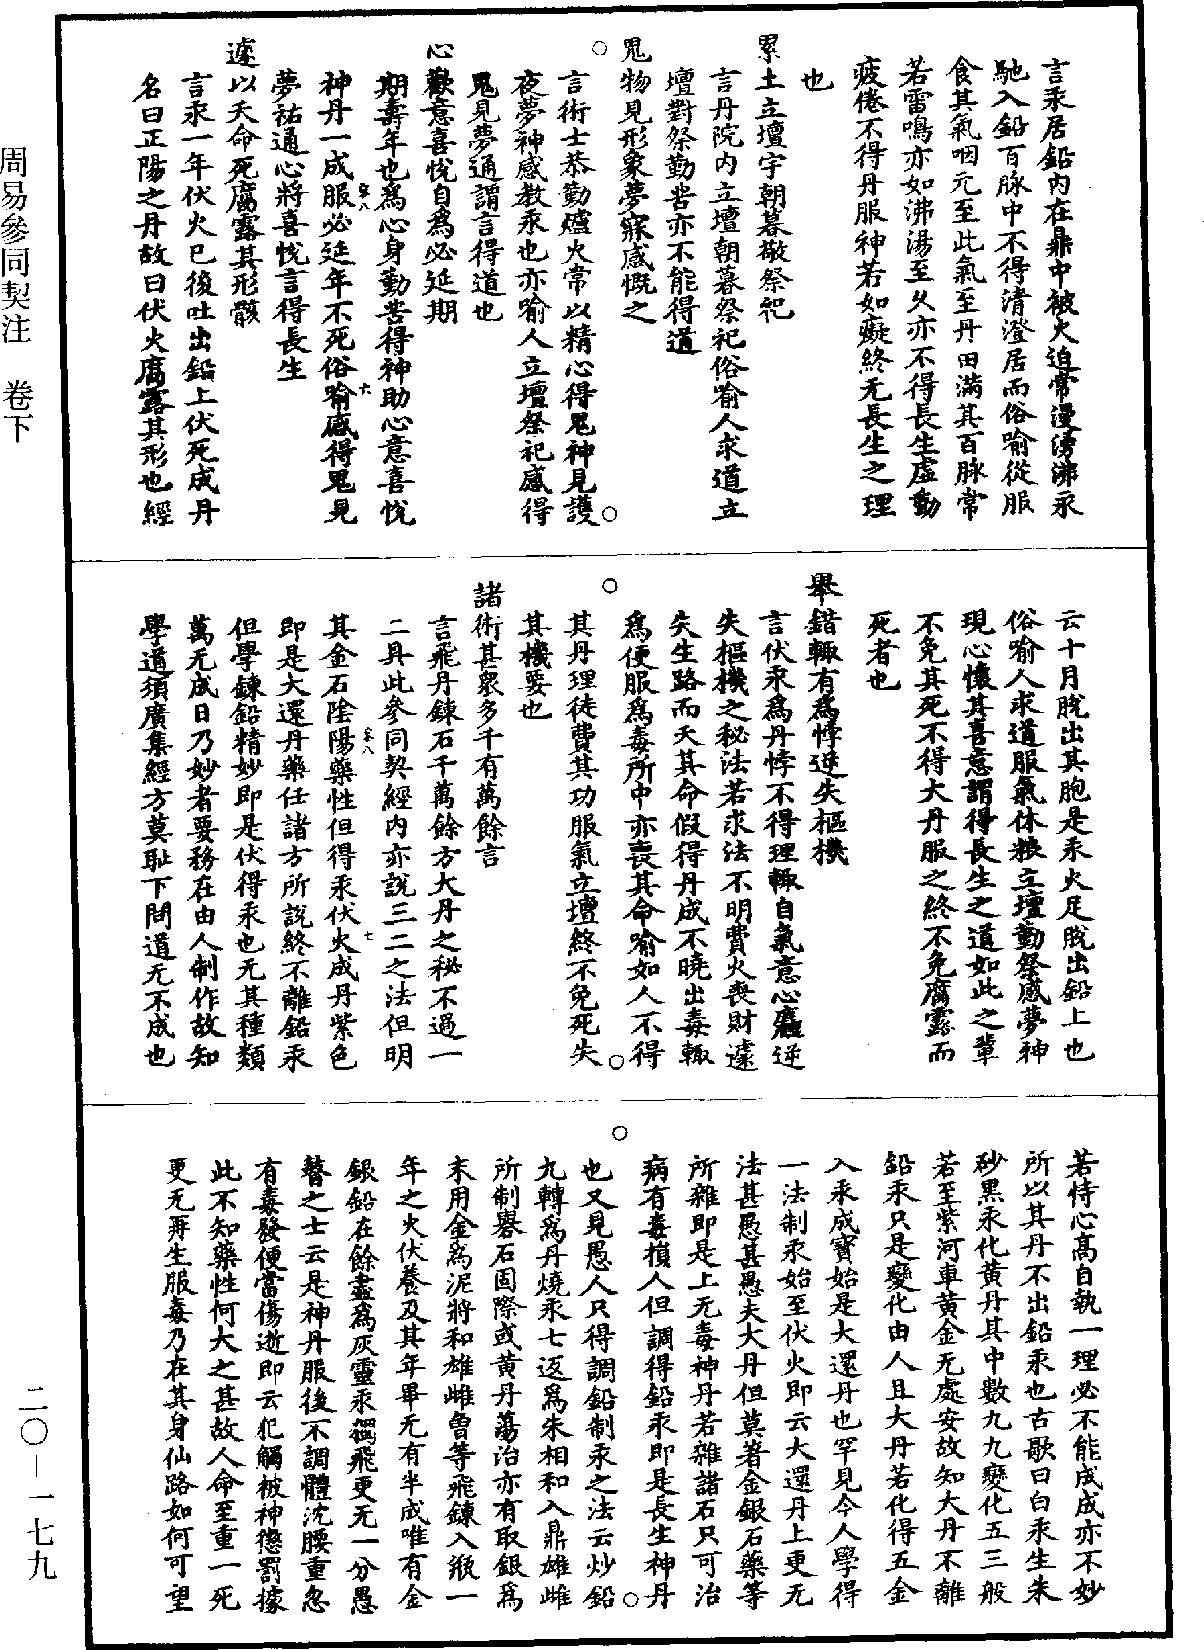 周易參同契注　卷下
言汞居鉛內在鼎中被火迫常漫湧沸汞
馳入鉛百脉中不得清澄居而俗喻從服
食其氣咽元至此氣至丹田滿其百脉常
若雷鳴亦如沸湯至久亦不得長生虛動
疲倦不得丹服神若如癡終无長生之理
也
累土立壇宇朝暮敬祭祀
言丹院內立壇朝暮祭祀俗喻人求道立
壇對祭勤苦亦不能得道
鬼物見形象夢寐感慨之
言術士恭勤爐火常以精心得鬼神見護
夜夢神感教汞也亦喻人立壇祭祀感得
鬼見夢通謂言得道也
心歡意喜悅自為必延期
期壽年也為心身勤苦得神助心意喜悅
神丹一成服必延年不死俗喻感得鬼見
夢祐通心將喜悅言得長生
遽以夭命死腐露其形骸
言汞一年伏火已後吐出鉛上伏死成丹
名曰正陽之丹故曰伏火腐露其形也經
云十月脫出其胞是汞火足脫出鉛上也
俗喻人求道服氣休粮立壇勤祭感夢神
現心懷其喜意謂得長生之道如此之輩
不免其死不得大丹服之終不免腐露而
死者也
舉錯輙有為悖逆失樞機
言伏汞為丹悖不得理輙自氣意心麤逆
失樞機之秘法若求法不明費火喪財遽
失生路而夭其命假得丹成不曉出毒輙
為便服為毒所中亦喪其命喻如人不得
其丹理徒費其功服氣立壇終不免死失
其機要也
諸術甚衆多千有萬餘言
言飛丹鍊石千萬餘方大丹之秘不過一
二具此參同契經內亦說三二之法但明
其金石陰陽藥性但得汞伏火成丹紫色
即是大還丹藥任諸方所說終不離鉛汞
但學鍊鉛精妙即是伏得汞也无其種類
萬无成日乃妙者要務在由人制作故知
學道須廣集經方莫恥下問道无不成也
若恃心高自執一理必不能成成亦不妙
所以其丹不出鉛汞也古歌曰白汞生朱
砂黑汞化黃丹其中數九九變化五三般
若至紫河車黃金无處安故知大丹不離
鉛汞只是變化由人且大丹若化得五金
入汞成寶始是大還丹也罕見今人學得
一法制汞始至伏火即云大還丹上更无
法甚愚甚愚夫大丹但莫著金銀石藥等
所雜即是上无毒神丹若雜諸石只可治
病有毒損人但調得鉛汞即是長生神丹
也又見愚人只得調鉛制汞之法云炒鉛
九轉為丹燒汞七返為朱相和入鼎雄雌
所制礬石固際或黃丹蕩治亦有取銀為
末用金為泥將和雄雌曾等飛鍊入瓶一
年之火伏養及其年畢无有半成唯有金
銀鉛在餘盡為灰靈汞獨飛更无一分愚
瞽之士云是神丹服後不調體沈腰重忽
有毒發便當傷逝即云犯觸被神懲罰據
此不知藥性何大之甚故人命至重一死
更无再生服毒乃在其身仙路如何可望
二〇—一七九